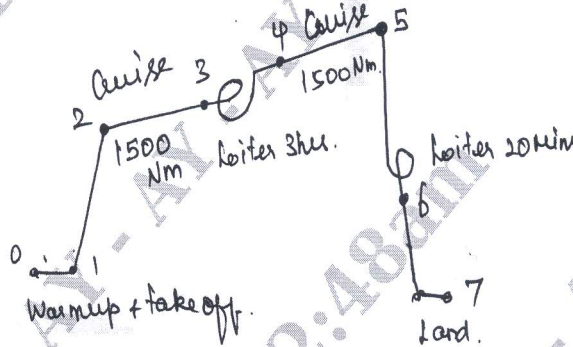 4 Cruise 5
Cruise 3
2
1500 Nm.
1500
Nm
Loiter 3hrs.
Loiter 20 Min
6
0
1
7
Warmup & take off.
Land.
AY - AY
AY - AY
:48am